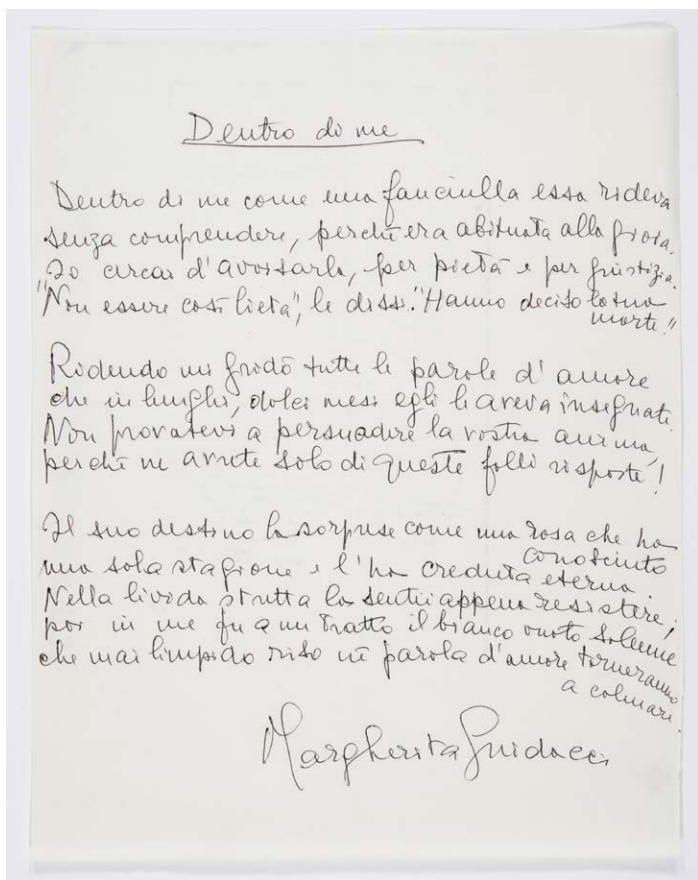 Dentro di me
Dentro di me come una fanciulla essa rideva
senza comprendere, perché era abituata alla gioia.
Io cercai d'avvisarla, per pietà e per giustizia.
"Non essere così lieta", le dissi. "Hanno deciso la tua
morte."
Ridendo mi gridò tutte le parole d'amore
che in lunghi, dolci mesi egli le aveva insegnate.
Non provatevi a persuadere la vostra anima,
perché ne avrete solo di queste folli risposte!
Il suo destino la sorprese come una rosa che ha
conosciuto
una sola stagione e l'ha creduta eterna.
Nella livida stretta la sentii appena resistere!
poi in me fu a un tratto il bianco vuoto solenne
che mai limpido riso né parola d'amore torneranno
a colmare.
Margherita Guidacci